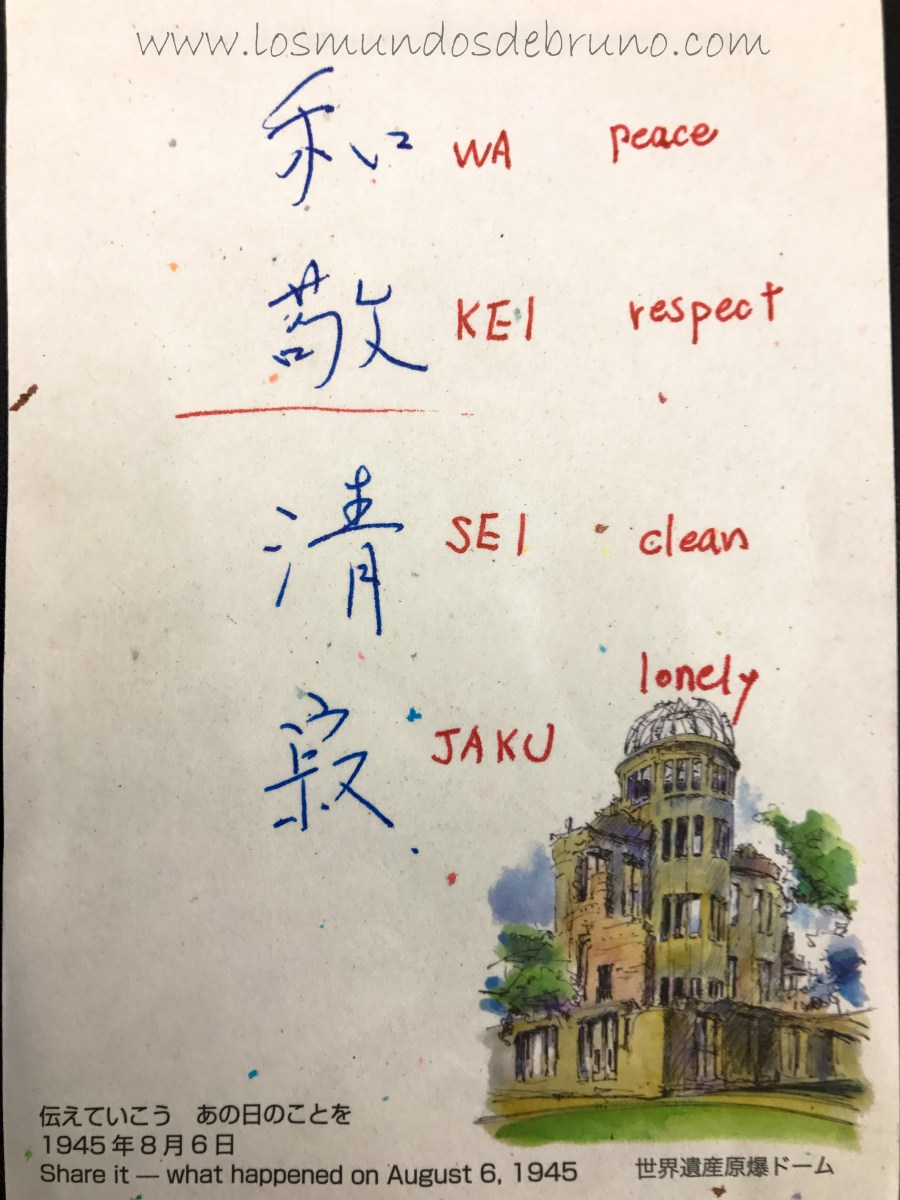 www.losmundosdebruno.com
和 WA peace
敬 KEI respect
清 SEI clean
寂 JAKU lonely
伝えていこう　あの日のことを
1945年8月6日
Share it — what happened on August 6, 1945
世界遺産原爆ドーム